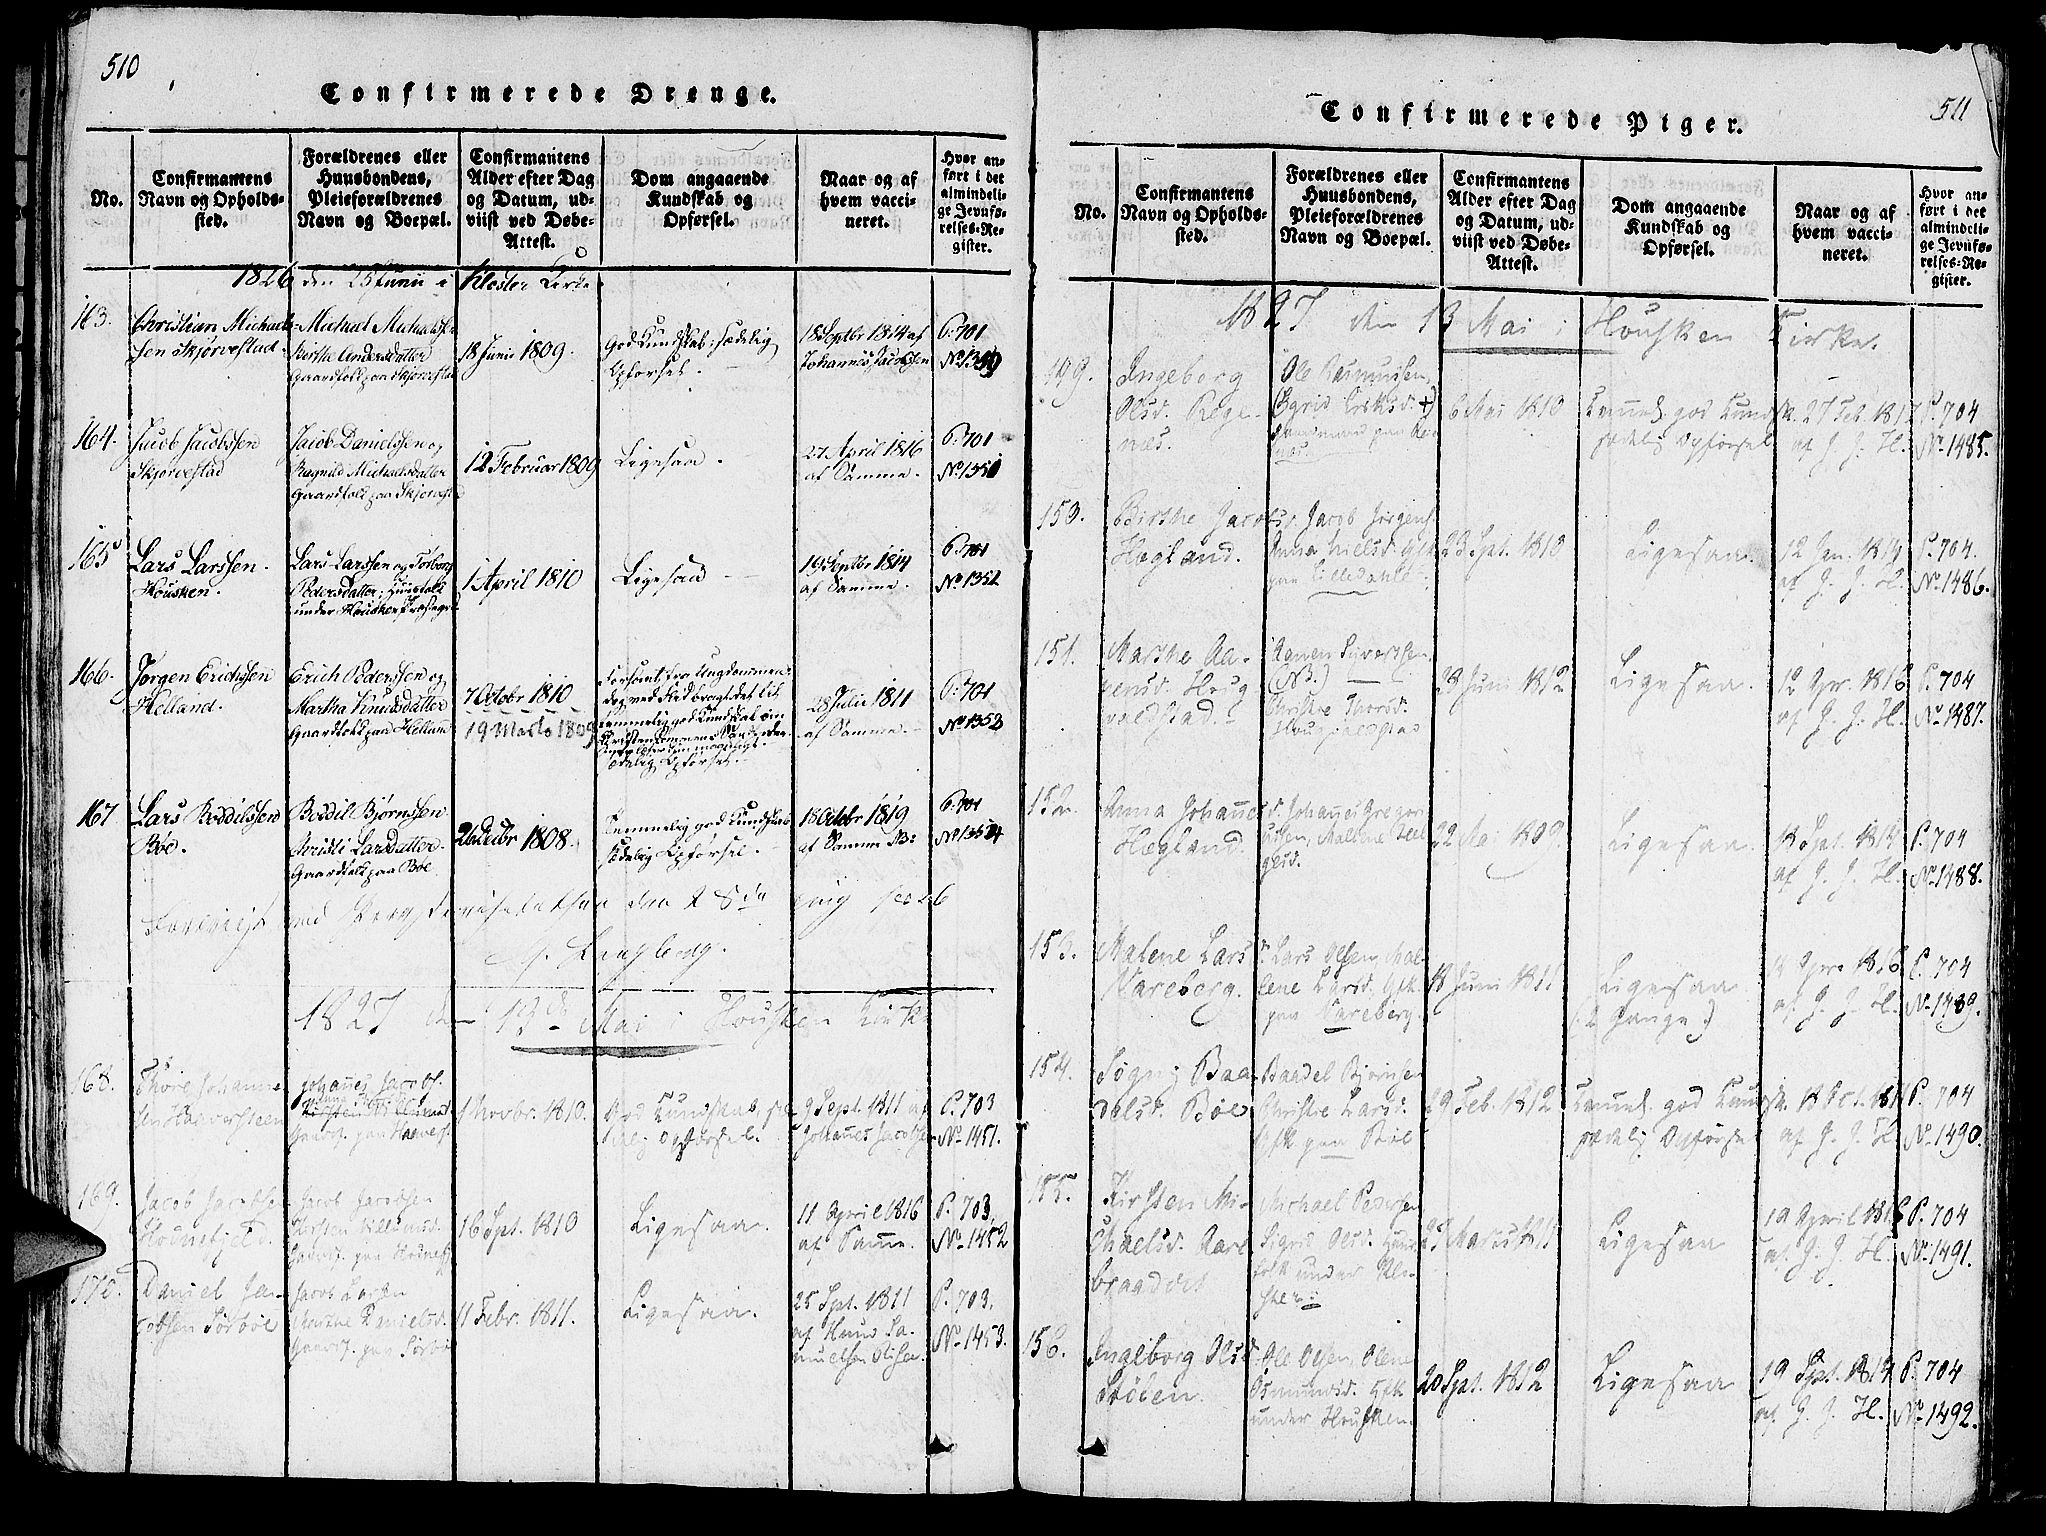 510
Confirmerede Drenge.
No.
Confirmantens
Navn og Opholds-
sted.
Forældrenes eller
Huusbondens,
Pleieforældrenes
Navn og Boepæl.
Confirmantens
Alder efter Dag
og Datum, ud-
viist ved Døbe-
Attest.
Dom angaaende
Kundskab og
Opførsel.
Naar og af
hvem vacci-
neret.
Hvor an-
ført i det
almindeli-
ge Jevnfø-
relses-Re-
gister.
1826 den 25 Junii i Kloster Kirke
163.
Christian Michael-
sen Skjørvestad.
Michael Michaelsen
Birthe Andersdatter
Gaardfolk paa Skjørvestad
18 Junii 1809.
God Kundskab; sædelig
Opførsel.
18 Septbr 1814 af
Johannes Jacobsen
P. 701
No 1350
164.
Jacob Jacobsen
Skjørvestad
Jacob Danielssen og
Ragnild Michaelsdatter
Gaardfolk paa Skjørvestad
12 Februar 1809
Ligesaa.
27 April 1816
af Samme.
P. 701
No 1351
165
Lars Larssen.
Housken.
Lars Larssen og Torborg
Pedersdatter; Huusfolk
under Housken Præstegrd
1 April 1810
Ligesaa
19 Septbr 1814
af Samme.
P. 701
No 1352
166.
Jørgen Erichssen
Helland.
Erich Pederssen og
Martha Knudsdatter
Gaardfolk paa Helland
7 Octobr 1810
19 Marts 1809
sædelig Opførsel.
28 Julii 1811
af Samme.
P. 701
No 1353
167
Lars Boddilssen
Bøe.
Boddil Bjørnssen
Christi Larsdatter.
Gaardfolk paa Bøe
26 Decbr 1808.
Temmelig god Kundskab
sædelig Opførsel.
13 Octobr 1819
af Samme
P. 701
No 1354
1827 den 13de Mai i Housken Kirke
168.
Johannes Jacobs.
1 Novbr. 1810.
God Kundskab sæ-
delig Opførsel.
9 Sept. 1811 af
Johannes Jacobsen
P. 703
No 1451.
169.
Jacob Jacobsen
Jacob Jacobsen
Kirsten
16 Spt. 1810
Ligesaa.
11 April 1816
af Samme.
P. 703.
No 1452
170.
Daniel Ja-
cobsen Sørbøe
Jacob Larsen
Danielsd.
Gaardf. paa Sørbø
11 Febr. 1811.
Ligesaa.
25 Spt. 1811
af Knud Sa-
muelsen
P. 703.
No 1453.
511
Confirmerede Piger.
No.
Confirmantens
Navn og Opholds-
sted.
Forældrenes eller
Huusbondens,
Pleieforældrenes
Navn og Boepæl.
Confirmantens
Alder efter Dag
og Datum, ud-
viist ved Døbe-
Attest.
Dom angaaende
Kundskab og
Opførsel.
Naar og af
hvem vacci-
neret.
Hvor an-
ført i det
almindeli-
ge Jevnfø-
relses-Re-
gister.
1827 den 13 Mai i Housken Kirke.
149.
Ingeborg
Olsd. Rege-
næs.
Ole Rasmussen,
Sigrid Eriksd. +)
6 Mai 1810
Temmel. god Kundsk.
sædelig Opførsel
27 Feb. 1817
af J. J. H.
P. 704
No 1485.
150.
Birthe Jacobs.
Hegland.
Jacob Jørgens.
Anna Nielsd. Gfk
paa Lilledahlen
23 Spt. 1810
Ligesaa.
12 Jan. 1814
af J. J. H.
P. 704.
No 1486.
151.
Marthe Aa-
nensd. Houg-
valdstad.
Aanen Sivertsen
(NB.)
Christie Thorsd.
28 Juni 1812
Ligesaa.
12 Apr. 1816
af J. J. H.
P. 704
No 1487.
152.
Anna Johannesd.
Hegland.
Johannes Gregor-
iussen, Mallene Hel-
gesd.
22 Mai 1809.
Ligesaa.
18 Spt. 1814
af J. J. H.
P. 704
No 1488.
153.
Malene Larsd.
Vareberg.
Lars Olsen, Mal-
lene Larsd. Gfk.
paa Vareberg.
18 Juni 1811
Ligesaa
(:2 Gange:)
Apr. 1816
af J. J. H.
P. 704
No 1489.
154.
Baa-
delsd. Bøe
Baadel Bjørnsen
Christie Larsd.
Gfk paa Bøe
29 Feb. 1812
Temmel. god Kundsk.
sædelig Opførsel
18 Oct.
af J. J. H.
P. 704
No 1490.
155.
Kirsten Mi-
chaelsd. Aare-
braadet
Michael Pedersen
Sigrid Olsd. Huus-
folk under Klo-
ster
Marts 1811
Ligesaa
19 April 1816
af J. J. H.
P. 704
No 1491.
156.
Ingeborg Olsd.
Støien.
Ole Olsen, Olene
Osmundsd. Gfk
under Housken.
20 Spt. 1812
Ligesaa
19 Spt. 1814
af J. J. H.
P. 704
No 1492.